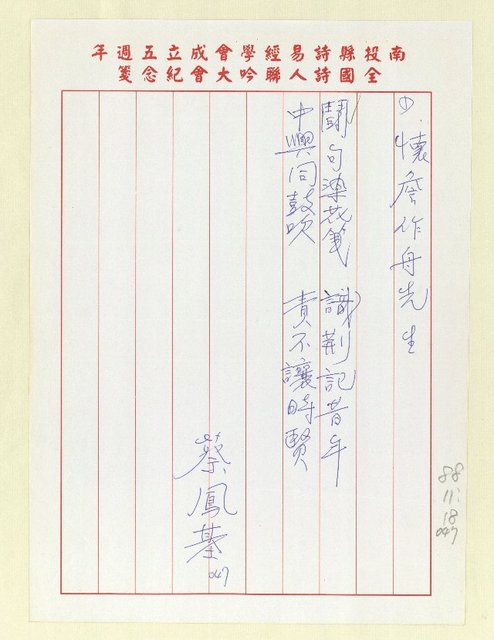 南投縣詩易經學會成立五週年
全國詩人聯吟大會紀念箋
懷詹作舟先生
鬪句連花箋 識荊記昔年
中興同鼓吹 責不讓時賢
蔡鳳基
047
88
11.
18
047